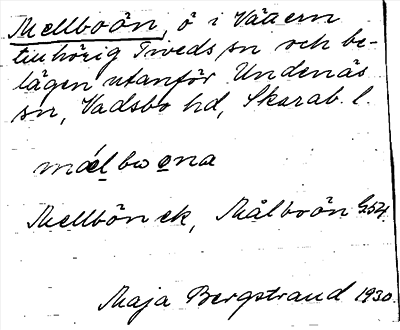 Mellboön, ö i Vättern
tillhörig Tiveds sn och be-
lägen utanför Undenäs
sn, Vadsbo hd, Skarab. l.
mǽlboɷna
Mellbön ek, Målboön G54.
Maja Bergstrand 1930.